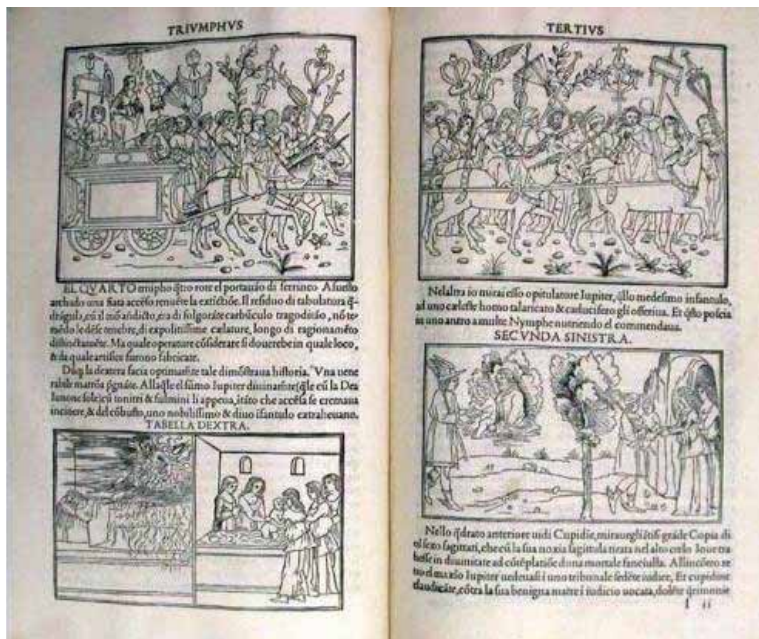 TRIVMPHVS
EL QVARTO triũpho q̃tro rote el portauão di ferrineo Asuesto
archado una fiata accẽso renuẽte la extictiõe. Il residuo di tabulatura q̃-
drãgula, cũ il mõ asdicto, era di fulgorãte carbũculo tragoditão, nõ te-
mẽdo le dẽse tenebre, di expolitissime cælature, longo di ragionamẽto
distinctamẽte. Ma quale operature cõsiderare si douerebe in quale loco,
& da quale artifice furono fabricate.
la dextera facia optimamẽte tale dimõstraua historia. Vna uene
rabile matrõa p̃gnãte. Alla q̃le el sũmo Iupiter diuinamẽte (q̃le cũ la Dea
Iunone sole) cũ tonitri & fulmini li appeua, itãto che accẽsa se cremaua
incinere, & del cõbusto, uno nobilissimo & diuo ifantulo extraheuano.
TABELLA DEXTRA.
TERTIVS
Nelaltra io mirai esso opitulatore Iupiter, q̃llo medesimo infantulo,
ad uno cæleste homo talaricato & caducifero gli offeriua. Et q̃sto poscia
in uno antro a multe Nymphe nutriendo el commendaua.
SECVNDA SINISTRA.
Nello q̃drato anteriore uidi Cupidie, mirauegli grãde Copia di
sexo sagittari, che cũ la sua noxia sagittula tirata nel alto cælo Ioue tra
hesse in diuinitate ad cõtẽplatiõe duna mortale fanciulla. Allincõtro
el maxio Iupiter uedeuasi i uno tribunale sedẽte iudice, Et cupidine
claudicãte, cõtra la sua benigna matre i iudicio uocata, dolẽte q̃rimonie